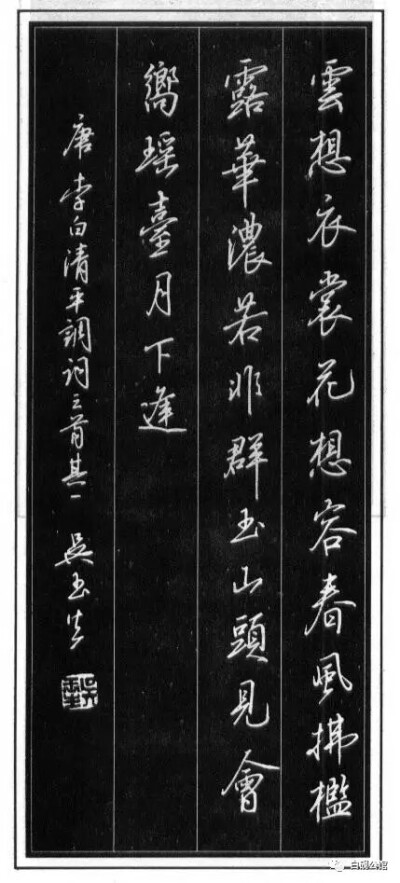 雲想衣裳花想容春風拂檻
露華濃若非群玉山頭見會
嚮瑶臺月下逢
唐李白清平調詞三首其一 吳玉生